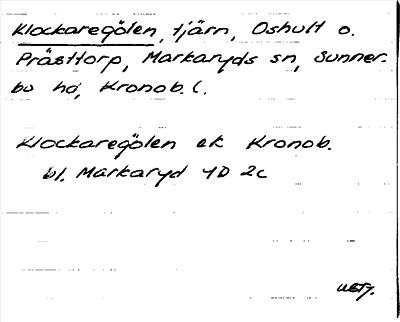 Klockaregölen, tjärn, Oshult o.
Prästtorp, Markaryds sn, Sunner-
bo hd, Kronob. l.
Klockaregölen ek Kronob.
bl. Markaryd 4D 2c